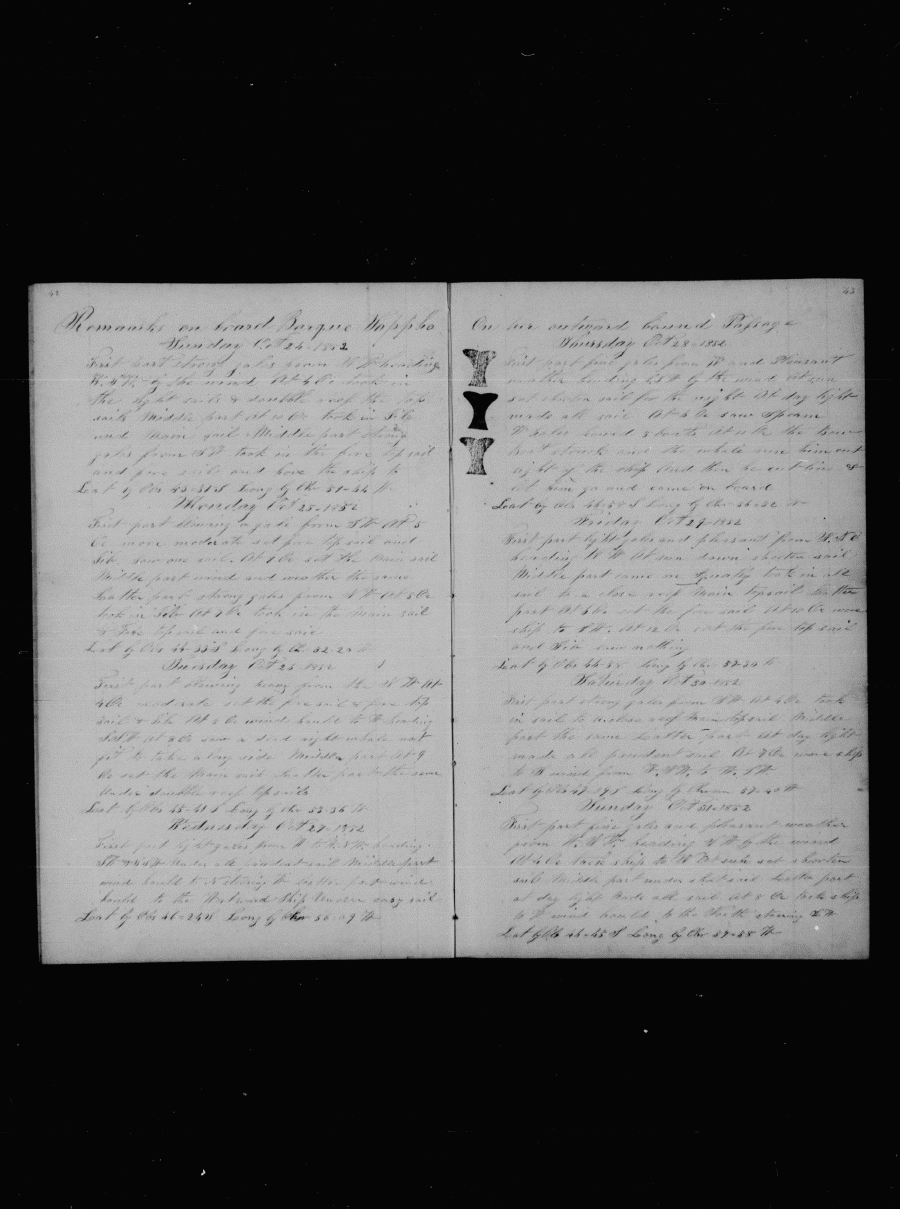 42
Remarks on board Barque Sappho
Sunday Oct 24-1852
First part strong gales from heading
by the wind At 4 Oc took in
the light sails & double reef the top
sails Middle part at 10 Oc took in Jib
and Main sail Middle part strong
gales from SW took in the fore top sail
and fore sail and hove the ship to
Lat by Obs 43-51 S Long by Chr 51-44 W
Monday Oct 25-1852
First part blowing a gale from SW At 5
Oc more moderate set fore top sail and
Jib saw one sail. At 7 Oc set the Main sail
Middle part wind and weather the same
Latter part strong gales from At 5 Oc
took in Jib At 7 Oc took in the Main sail
& Fore top sail and fore sail
Lat by Obs 44-33 S Long by Chr 52-20 W
Tuesday Oct 26-1852
First part blowing heavy from the At
4 Oc moderate set the fore sail & fore top
sail & Jib At 2 Oc wind hauld to heading
At 3 Oc saw a dead right whale not
fit to take a long side Middle part At 9
Oc set the Main sail Latter part the same
Under double reef top sails
Lat by Obs 45-41 S Long by Chr 53-36 W
Wednesday Oct 27-1852
First part light gales from W to heading
Under all prudent sail Middle part
wind hauld to N steering Latter part wind
hauld to the Westward Ship Under easy sail
Lat by Obs 46-24 S Long by Chr 56-09 W
43
On our outward bound Passage
Thursday Oct 28-1852
First part fine gales from and Pleasant
weather heading by the wind At sun
set shorten sail for the night At day light
made all sail At 6 Oc saw Sperm
Whales lowerd 3 boats At 11 the
boat struck and the whale run him out
sight of the ship And then he cut line &
let him go and came on board
Lat by Obs 46-50 S Long by Chr 56-32 W
Friday Oct 29-1852
First part light gales and pleasant from
heading At sun down shorten sail
Middle part came on squally took in all
sail to a close reef Main topsail Latter
part At 5 Oc set the fore sail At 10 Oc wore
ship to At 12 Oc set the fore top sail
and Jib saw nothing
Lat by Obs 46-38 Long by Chr 57-30 W
Saturday Oct 30-1852
First part strong gales from At 4 Oc took
in sail to a close reef Main topsail Middle
part the same Latter part At day light
made all prudent sail At 7 Oc wore ship
to wind from to
Lat by Obs 47-17 S Long by Chr 57-40 W
Sunday Oct 31-1852
First part fine gales and pleasant weather
from heading by the wind
At 4 Oc tack ship to At sun set shorten
sail Middle part under short sail Latter part
at day light Made all sail At 8 Oc tack ship
to wind hauld to the steering
Lat by Ob 46-45 S Long by Chr 57-58 W